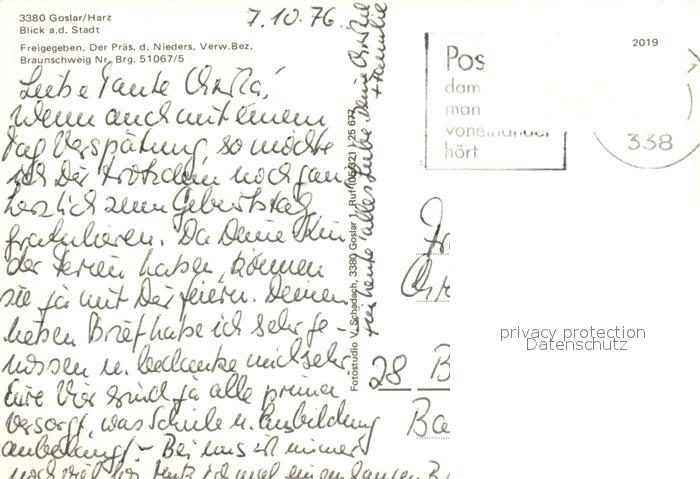 3380 Goslar/Harz
Blick a.d. Stadt
Freigegeben. Der Präs. d. Nieders. Verw.Bez.
Braunschweig Nr. Brg. 51067/5
7.10.76.
Liebe Tante Christa!
Wenn auch mit einem
Tag Verspätung so möchte
ich Dir trotzdem noch ganz
herzlich zum Geburtstag
gratulieren. Da Deine Kin
der Ferien haben, können
sie ja mit Dir feiern. Deinen
lieben Brief habe ich sehr ge-
nossen u. bedanke mich sehr.
Eure Vier sind ja alle prima
versorgt, was Schule u. Ausbildung
anbelangt. - Bei uns ist immer
noch
Für heute alles Liebe Deine
+ Familie
Fotostudio V. Schadach, 3380 Goslar 1, Ruf (05321) 25 677
Pos
dam
man
voneinander
hört
2019
338
28 B
Ba
privacy protection
Datenschutz